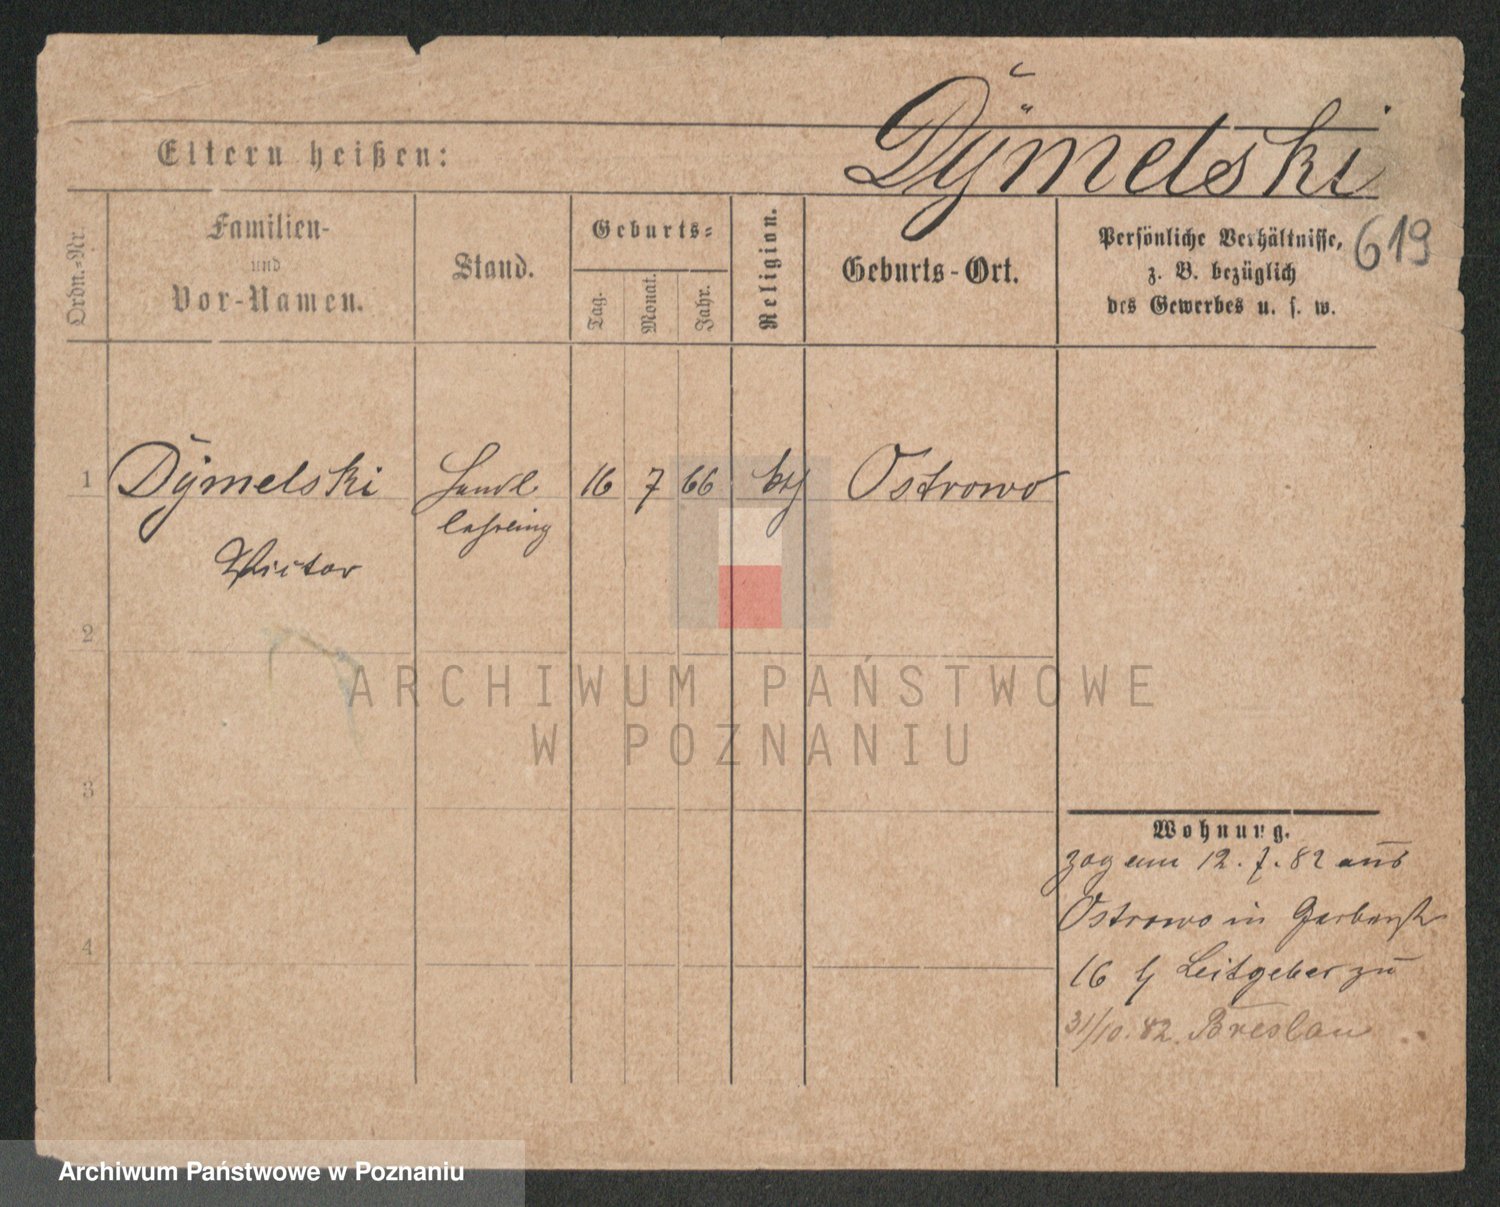 Dÿmelski
Eltern heißen:
619
Ordn.-Nr.
Familien-
und
Vor-Namen.
Stand.
Geburts-
Tag.
Monat.
Jahr.
Religion.
Geburts-Ort.
Persönliche Verhältnisse,
z. B. bezüglich
des Gewerbes u. s. w.
1 Dÿmelski Handl 16 7 66 kth Ostrowo
lehrling
Victor
2
ARCHIWUM PAŃSTWOWE
W POZNANIU
3
Wohnung.
zog am 12. 7. 82 aus
Ostrowo in Gerberstr
4
16 b Leitgeber zu
31/10. 82. Breslau
Archiwum Państwowe w Poznaniu